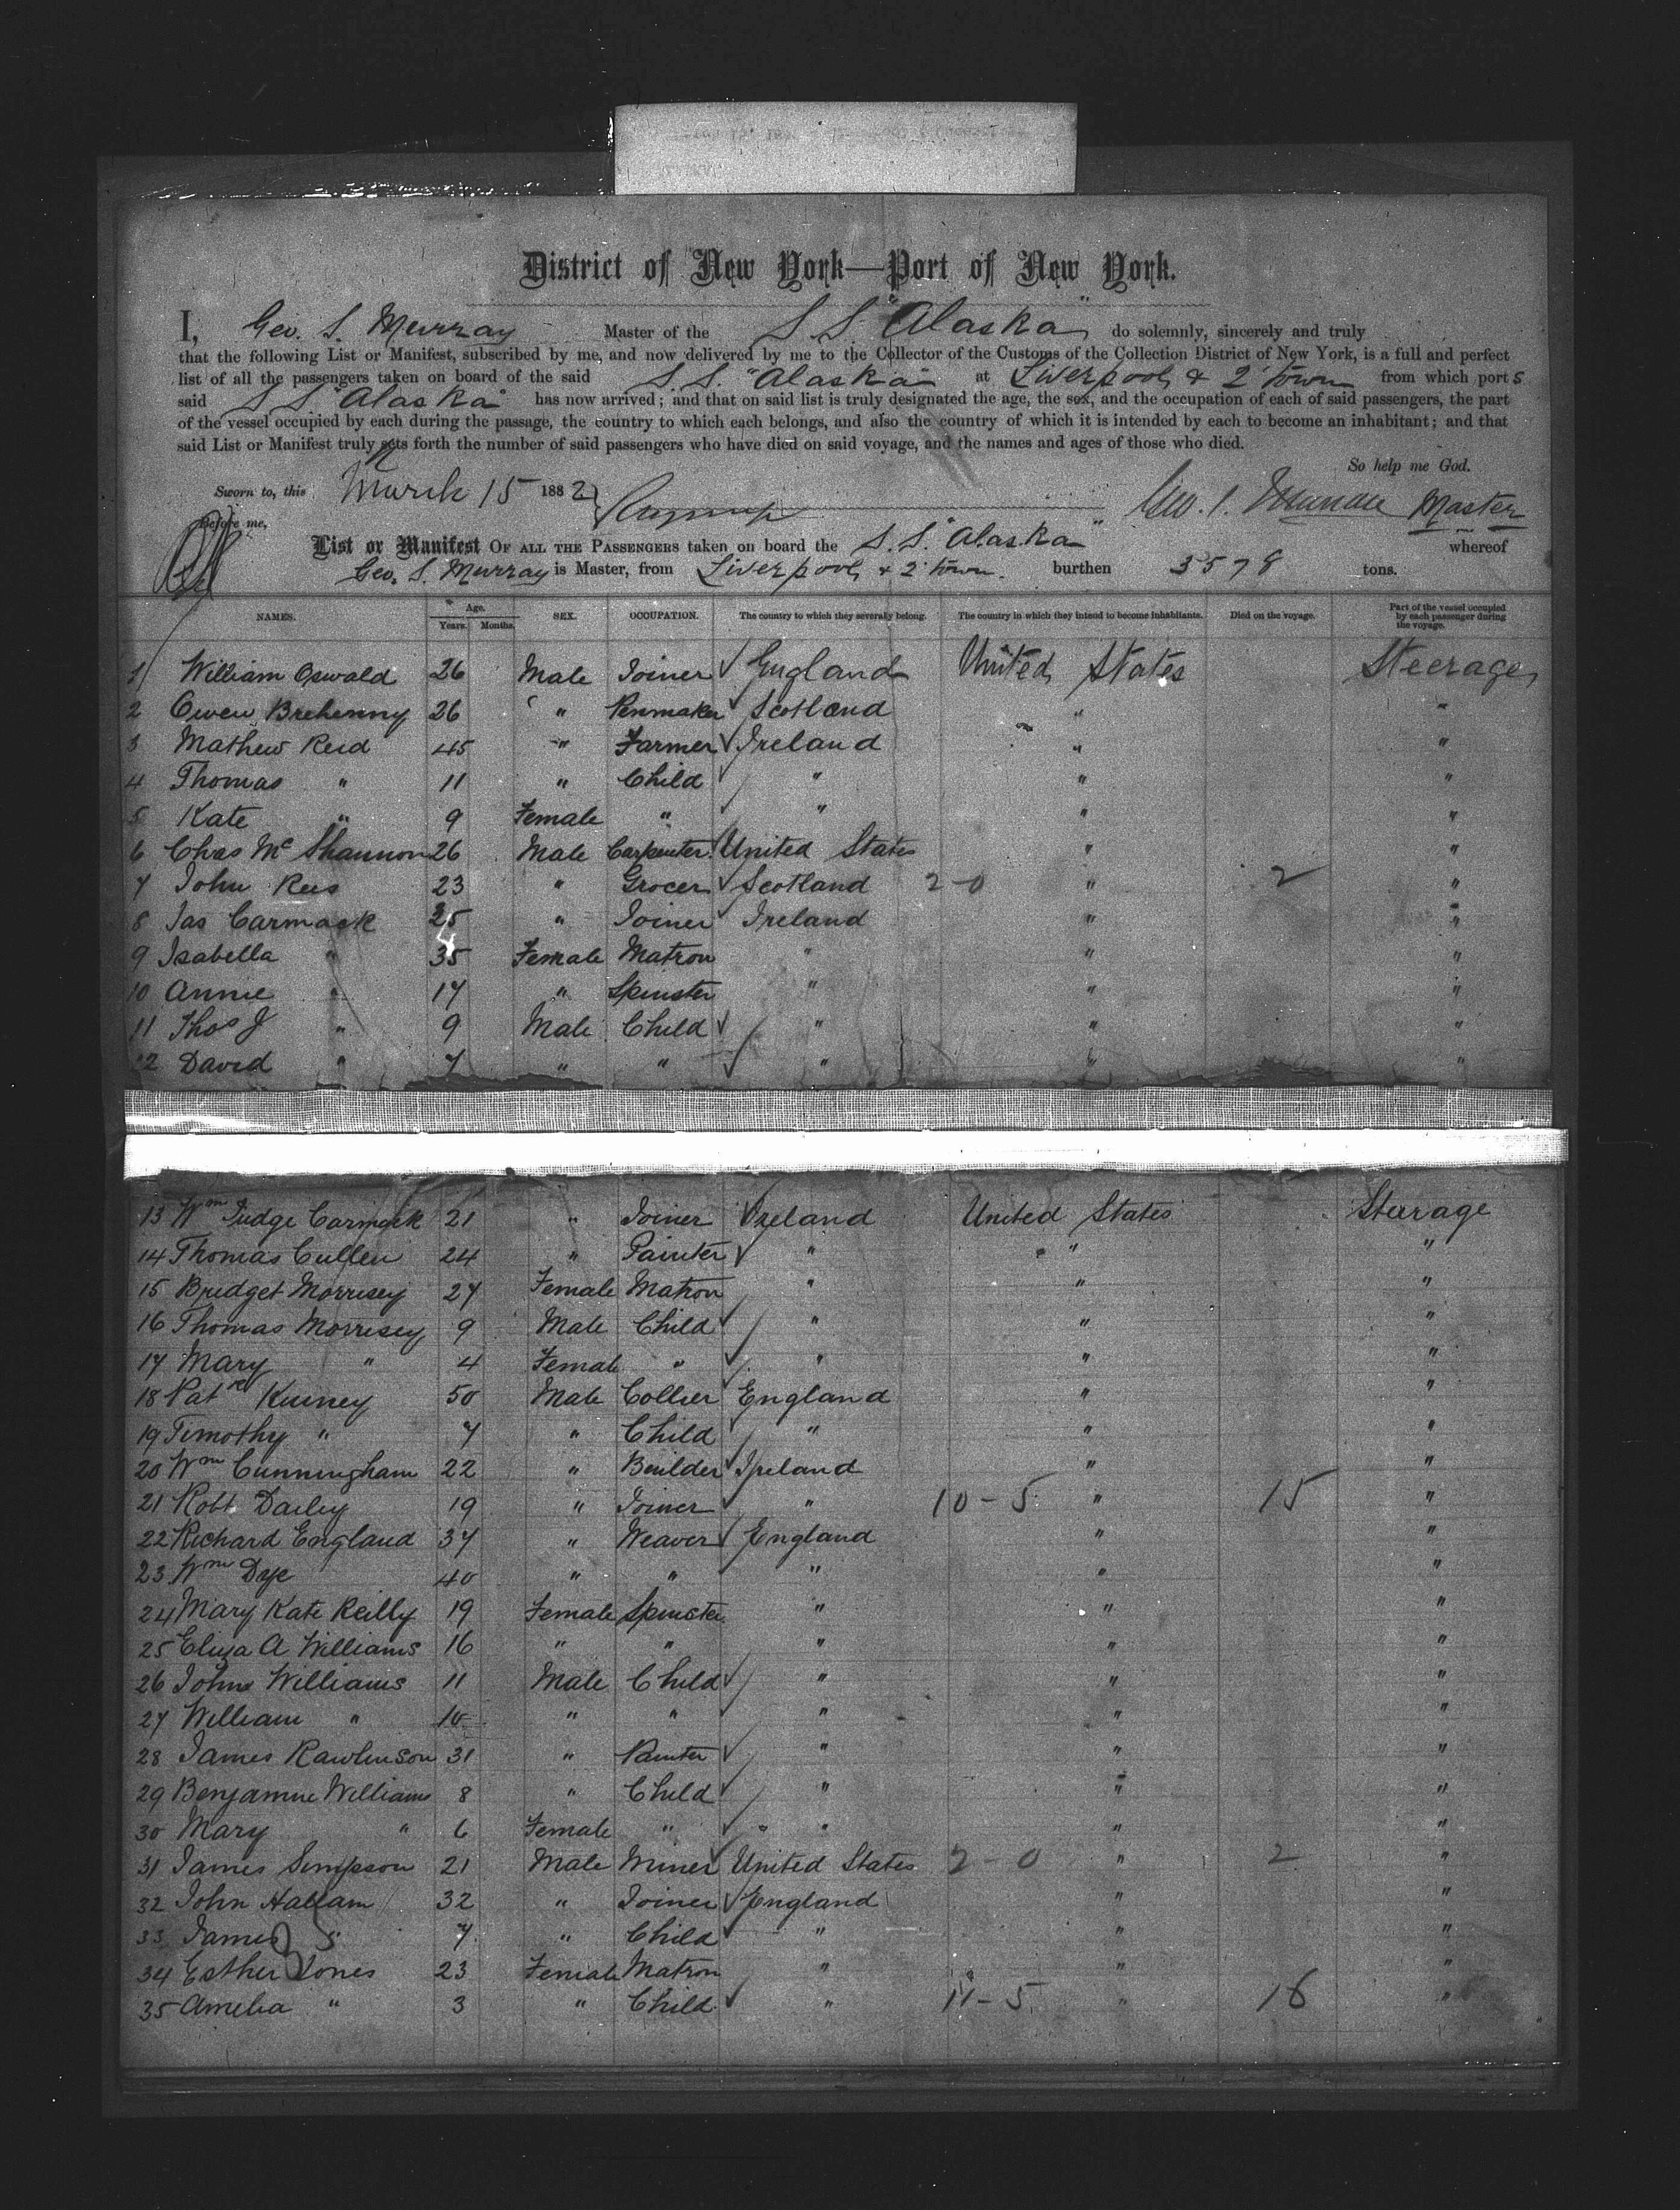 District of New York—Port of New York.
I, Geo. S. Murray Master of the S S "Alaska" do solemnly, sincerely and truly
that the following List or Manifest, subscribed by me, and now delivered by me to the Collector of the Customs of the Collection District of New York, is a full and perfect
list of all the passengers taken on board of the said S. S. "Alaska" at Liverpool & Q'town from which ports
said S S "Alaska" has now arrived; and that on said list is truly designated the age, the sex, and the occupation of each of said passengers, the part
of the vessel occupied by each during the passage, the country to which each belongs, and also the country of which it is intended by each to become an inhabitant; and that
said List or Manifest truly sets forth the number of said passengers who have died on said voyage, and the names and ages of those who died.
So help me God.
Sworn to, this March 15 1882 Geo. S. Murray Master
Before me,
List or Manifest OF ALL THE PASSENGERS taken on board the S. S. "Alaska" whereof
Geo. S. Murray is Master, from Liverpool & Q'town. burthen 3578 tons.
NAMES. Age. Years. Months. SEX. OCCUPATION. The country to which they severally belong. The country in which they intend to become inhabitants. Died on the voyage. Part of the vessel occupied by each passenger during the voyage.
1 William Oswald 26 Male Joiner England United States Steerage
2 Owen Brehenny 26 " Penmaker Scotland " "
3 Mathew Reid 45 " Farmer Ireland " "
4 Thomas " 11 " Child " " "
5 Kate " 9 Female " " " "
6 Chas Mc Shannon 26 Male Carpenter United States " "
7 John Rees 23 " Grocer Scotland 2-0 " 2 "
8 Jas Carmack 25 " Joiner Ireland " "
9 Isabella " 35 Female Matron " " "
10 Annie " 17 " Spinster " " "
11 Thos J " 9 Male Child " " "
12 David " 7 " " " " "
13 Wm Judge Carmack 21 " Joiner Ireland United States Steerage
14 Thomas Cullen 24 " Painter " " "
15 Bridget Morrisey 27 Female Matron " " "
16 Thomas Morrisey 9 Male Child " " "
17 Mary " 4 Female " " " "
18 Patk Kinney 50 Male Collier England " "
19 Timothy " 7 " Child " " "
20 Wm Cunningham 22 " Builder Ireland " "
21 Robt Dailey 19 " Joiner " 10-5 " 15 "
22 Richard England 37 " Weaver England " "
23 Wm Dye 40 " " " " "
24 Mary Kate Reilly 19 Female Spinster " " "
25 Eliza A Williams 16 " " " " "
26 John Williams 11 Male Child " " "
27 William " 10 " " " " "
28 James Rawlinson 31 " Painter " " "
29 Benjamine Williams 8 " Child " " "
30 Mary " 6 Female " " " "
31 James Simpson 21 Male Miner United States 2-0 " 2 "
32 John Hallam 32 " Joiner England " "
33 James " 7 " Child " " "
34 Esther Jones 23 Female Matron " " "
35 Amelia " 3 " Child " 11-5 " 16 "